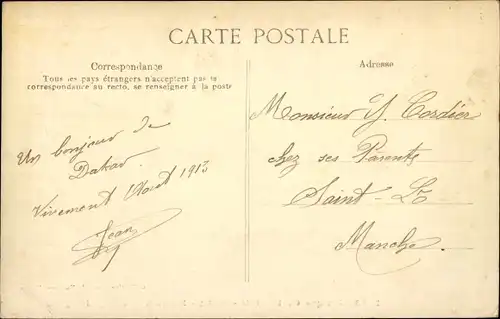 CARTE POSTALE
Correspondance
Tous les pays étrangers n'acceptent pas la
correspondance au recto, se renseigner à la poste
Un bonjour de
Dakar.
Vivement l'Aout 1913
Jean
Adresse
Monsieur Y. Cordier
chez ses Parents
Saint-Lô
Manche.